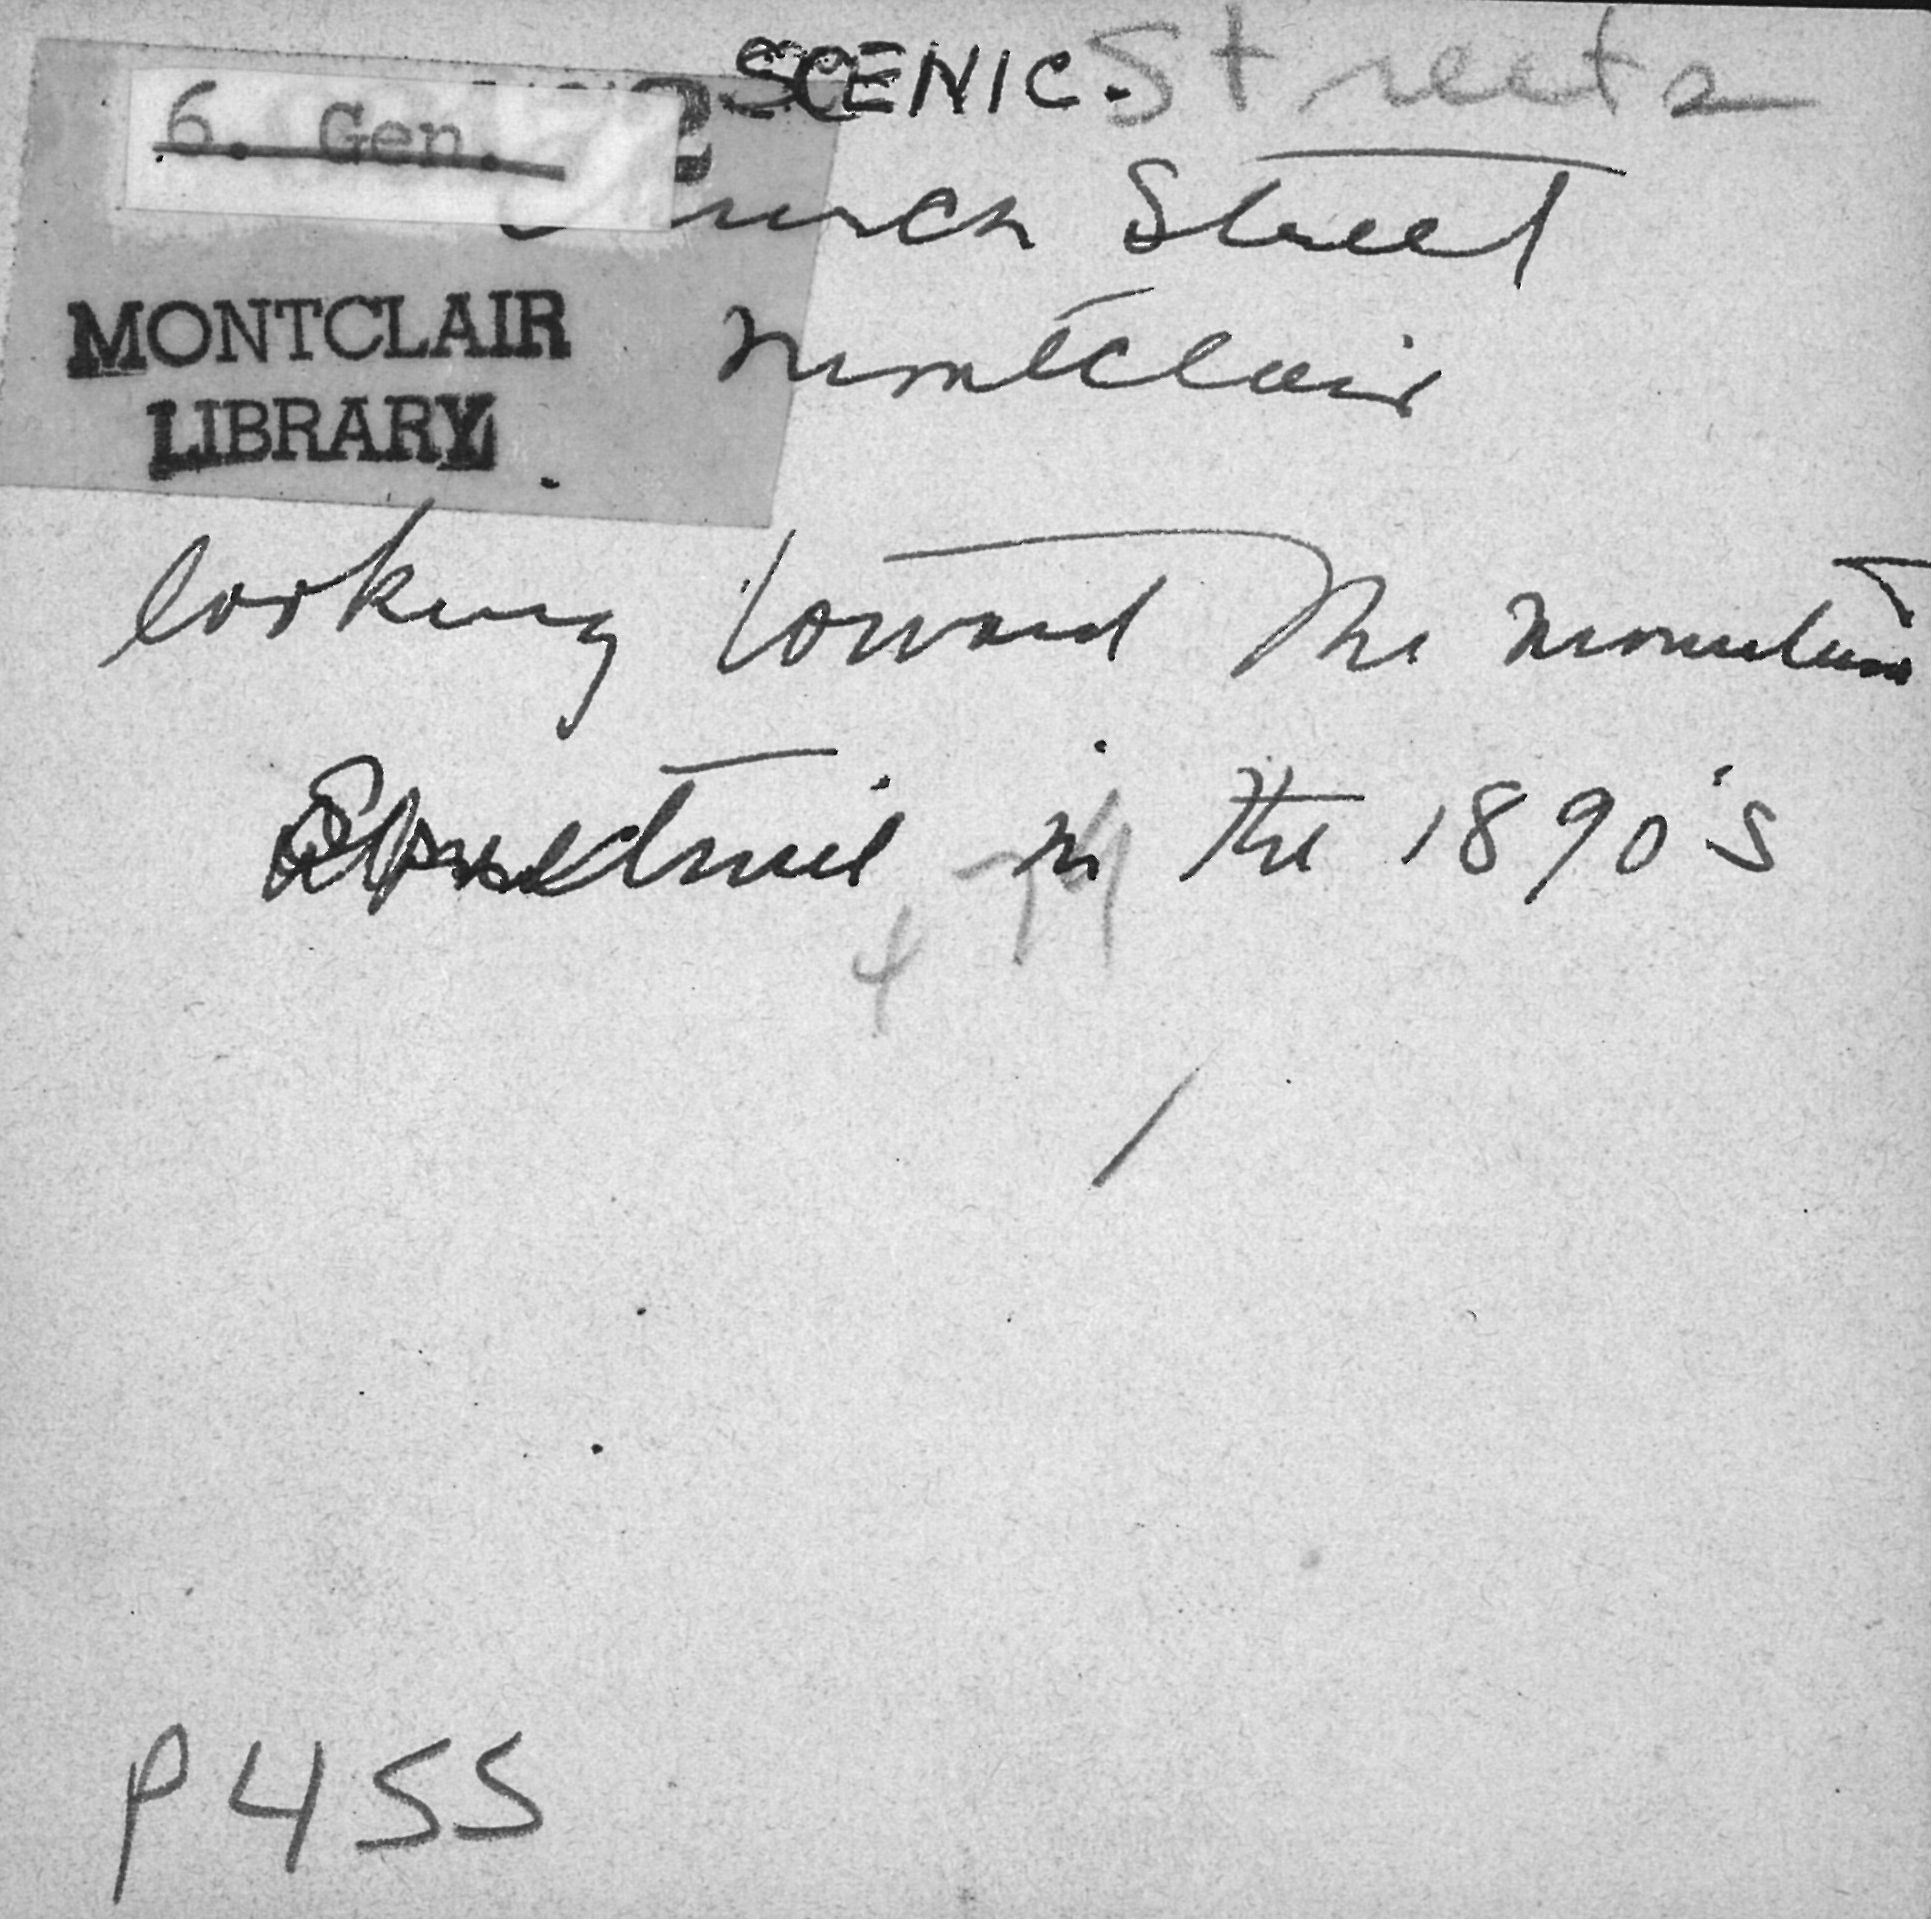 SCENIC. Streets
6. Gen.
urch Street
MONTCLAIR
LIBRARY
Montclair
looking toward the mountain
in the 1890's
4
P455